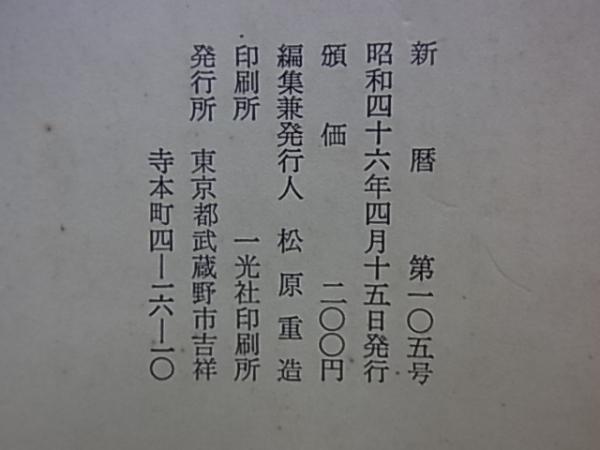 新暦 第一〇五号
昭和四十六年四月十五日発行
頒価 二〇〇円
編集兼発行人 松原重造
印刷所 一光社印刷所
発行所 東京都武蔵野市吉祥
寺本町四―二六―一〇